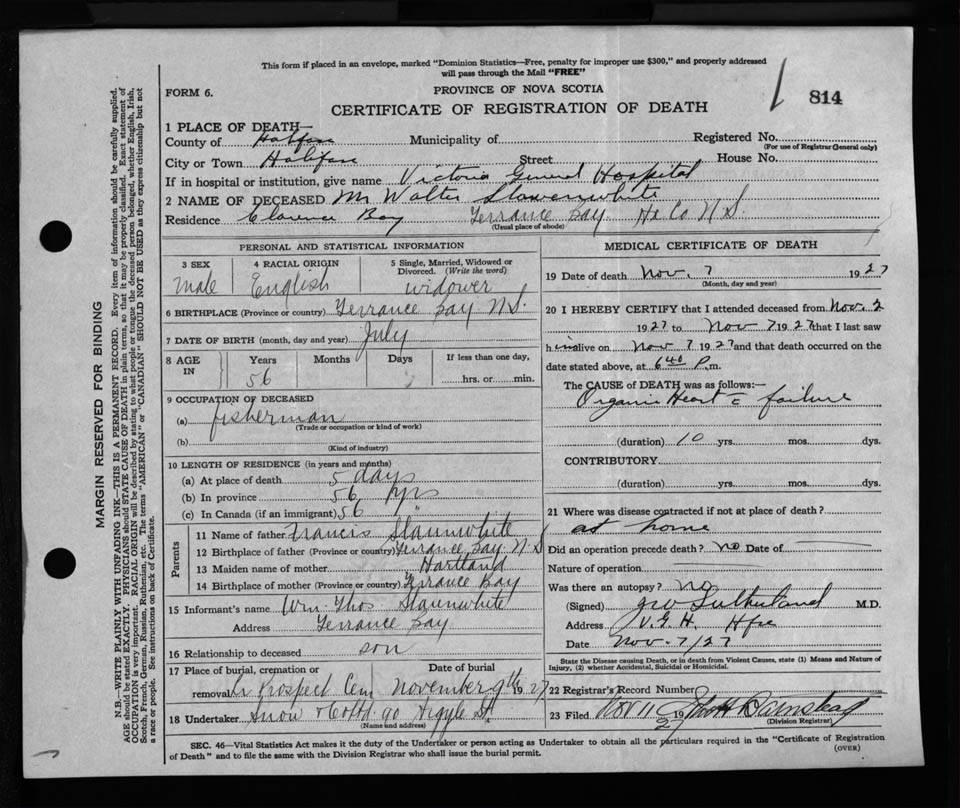 This form if placed in an envelope, marked "Dominion Statistics—Free, penalty for improper use $300," and properly addressed
will pass through the Mail "FREE"
FORM 6.
PROVINCE OF NOVA SCOTIA
CERTIFICATE OF REGISTRATION OF DEATH
814
1 PLACE OF DEATH—
County of Halifax Municipality of Registered No.
(For use of Registrar General only)
City or Town Halifax Street House No.
If in hospital or institution, give name Victoria General Hospital
2 NAME OF DECEASED Mr Walter Slawenwhite
Residence Clarence Bay Terrance Bay Hx Co N S.
(Usual place of abode)
PERSONAL AND STATISTICAL INFORMATION
3 SEX 4 RACIAL ORIGIN 5 Single, Married, Widowed or
Divorced. (Write the word)
male English widower
6 BIRTHPLACE (Province or country) Terrance Bay N S.
7 DATE OF BIRTH (month, day and year) July
8 AGE IN Years Months Days If less than one day,
56 hrs. or min.
9 OCCUPATION OF DECEASED
(a) fisherman
(Trade or occupation or kind of work)
(b)
(Kind of industry)
10 LENGTH OF RESIDENCE (in years and months)
(a) At place of death 5 days
(b) In province 56 yrs
(c) In Canada (if an immigrant) 56 "
Parents
11 Name of father Francis Slaunwhite
12 Birthplace of father (Province or country) Terrance Bay N S
13 Maiden name of mother Hartland
14 Birthplace of mother (Province or country) Terrance Bay
15 Informant's name Wm Thos Slaunwhite
Address Terrance Bay
16 Relationship to deceased son
17 Place of burial, cremation or Date of burial
removal Prospect Cem November 9th 1927
18 Undertaker Snow & Co Ltd 90 Argyle St
(Name and address)
MEDICAL CERTIFICATE OF DEATH
19 Date of death Nov. 7 1927
(Month, day and year)
20 I HEREBY CERTIFY that I attended deceased from Nov. 2
1927 to Nov 7 1927 that I last saw
him alive on Nov 7 1927 and that death occurred on the
date stated above, at 6 40 P.m.
The CAUSE OF DEATH was as follows:—
Organic Heart c failure
(duration) 10 yrs. mos. dys.
CONTRIBUTORY
(duration) yrs. mos. dys.
21 Where was disease contracted if not at place of death?
at home
Did an operation precede death? no Date of
Nature of operation
Was there an autopsy? no
(Signed) J W Sutherland M.D.
Address V. G. H. Hfx
Date Nov. 7/27
State the Disease causing Death, or in death from Violent Causes, state (1) Means and Nature of
Injury, (2) whether Accidental, Suicidal or Homicidal.
22 Registrar's Record Number
23 Filed Nov 11 1927
(Division Registrar)
SEC. 46—Vital Statistics Act makes it the duty of the Undertaker or person acting as Undertaker to obtain all the particulars required in the "Certificate of Registration
of Death" and to file the same with the Division Registrar who shall issue the burial permit.
(OVER)
MARGIN RESERVED FOR BINDING
N.B. WRITE PLAINLY WITH UNFADING INK—THIS IS A PERMANENT RECORD. Every item of information should be carefully supplied.
AGE should be stated EXACTLY. PHYSICIANS should STATE CAUSE OF DEATH in plain terms, so that it may be properly classified. Exact statement of
OCCUPATION is very important. RACIAL ORIGIN will be described by stating to what people or tongue the deceased person belonged, whether English, Irish,
Scotch, French, German, Russian, Ruthenian, etc. The terms "AMERICAN" or "CANADIAN" SHOULD NOT BE USED as they express citizenship but not
a race or people. See instructions on back of Certificate.